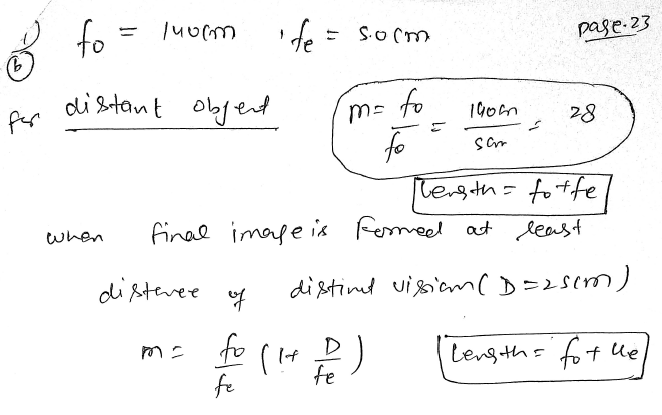 page.23
1) fo = 140cm , fe = 5.0cm
(b)
for distant object m = fo/fo = 140cm/5cm = 28
Length = fo+fe
when final image is formed at least
distance of distinct vision (D=25cm)
m = fo/fe (1+ D/fe) Length = fo+ue